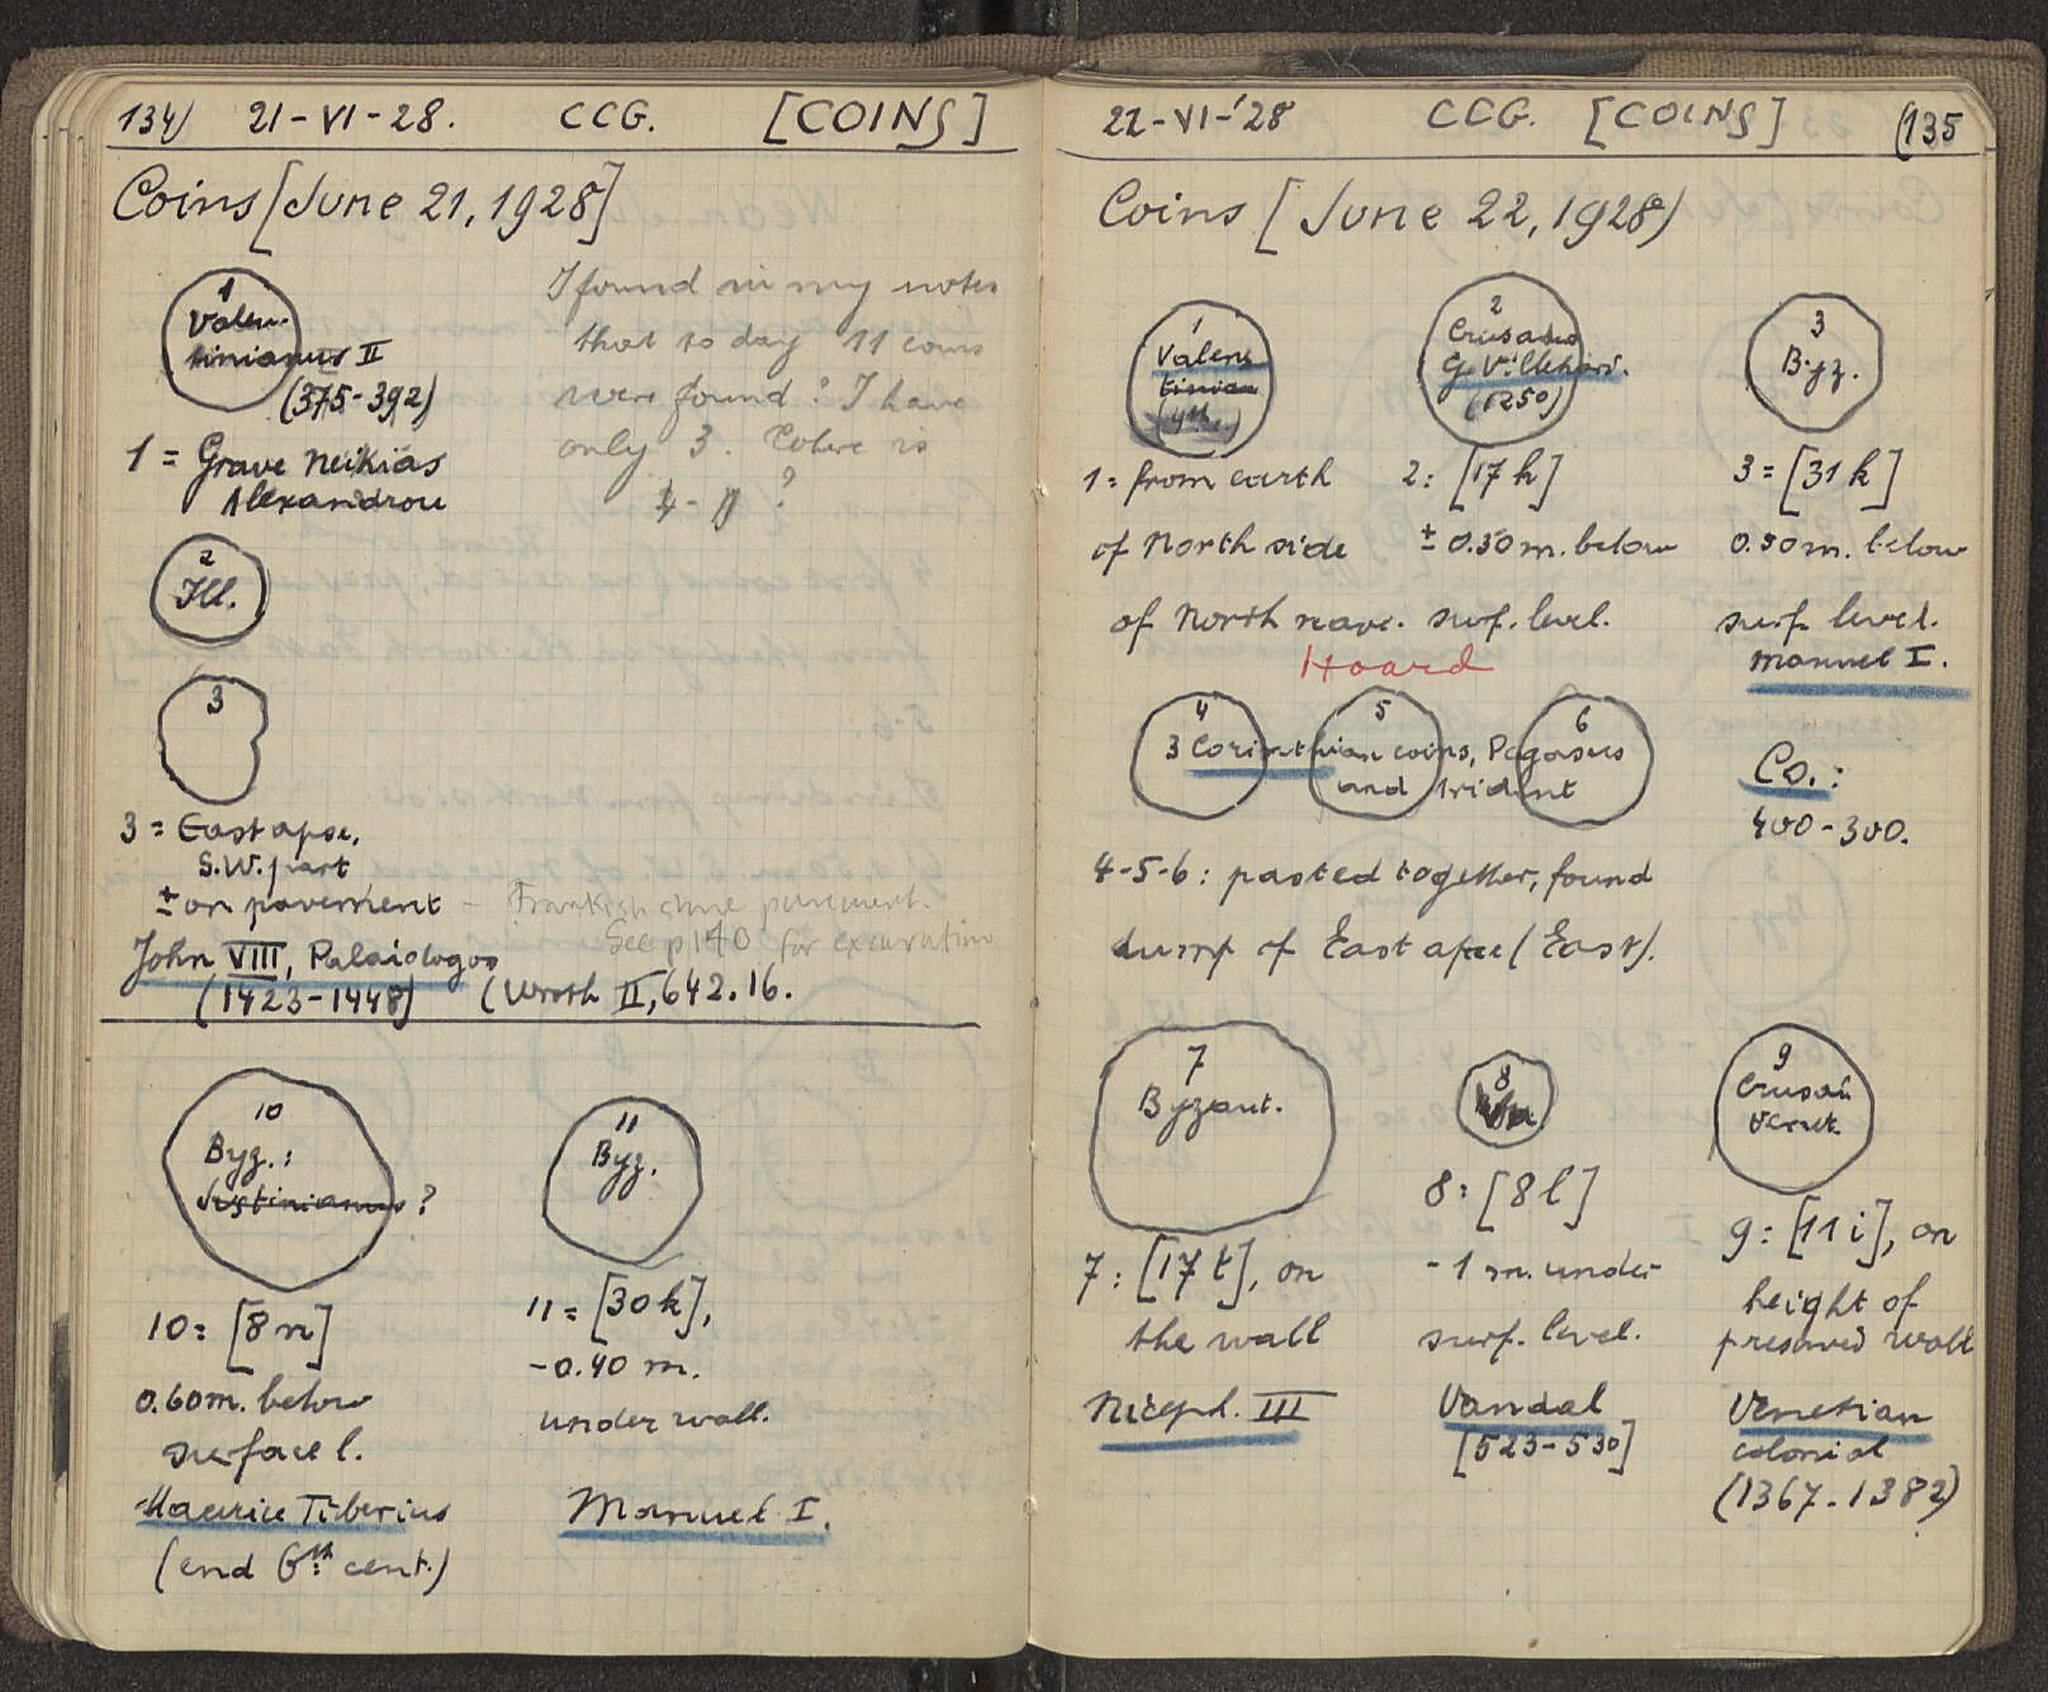 134) 21-VI-28. CCG. [COINS]
Coins [June 21, 1928]
1
Valen-
tinianus II
(375-392)
1 = Grave Neikias
Alexandrou
I found in my notes
that to day 11 coins
were found? I have
only 3. Where is
4-11?
2
Ill.
3
3 = East apse,
S.W. part
± on pavement - Frankish time pavement.
See p 140 for excavation
John VIII, Palaiologos
(1423-1448) (Wroth II, 642.16.
10
Byz.:
Justinianus?
11
Byz.
10= [8n]
0.60m. below
surface l.
Maurice Tiberius
(end 6th cent.)
11= [30k],
-0.40 m.
under wall.
Manuel I.
22-VI-'28 CCG. [COINS] (135
Coins [June 22, 1928)
1
Valens
tinian
(4th)
2
Crusader
G. Villehard.
(1250)
3
Byz.
1= from earth
of North side
of North nave.
2: [17h]
± 0.50m. below
surf. level.
3= [31k]
0.50m. below
surf. level.
Manuel I.
Hoard
4 5 6
3 Corinthian coins, Pegasus
and trident
Co.:
400-300.
4-5-6: pasted together, found
dump of East apse (East).
7
Byzant.
8
9
Crusad.
Venet.
7: [17t], on
the wall
Niceph. III
8: [8l]
-1 m. under
surf. level.
Vandal
[523-530]
9: [11i], on
height of
preserved wall
Venetian
colonial
(1367-1382)